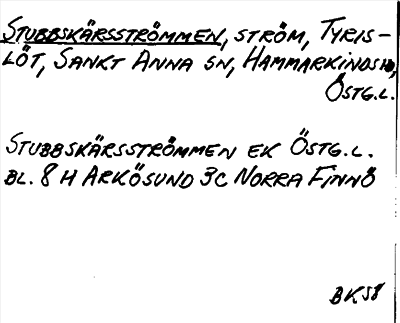 STUBBSKÄRSSTRÖMMEN, STRÖM, TYRIS-
LÖT, SANKT ANNA SN, HAMMARKINDS HD,
ÖSTG.L.
STUBBSKÄRSSTRÖMMEN EK ÖSTG.L.
BL. 8 H ARKÖSUND 3C NORRA FINNÖ
BK58